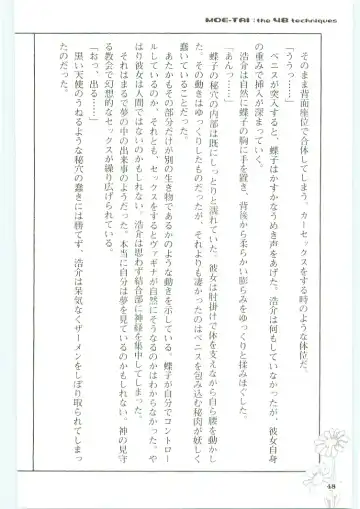 MOE-TAI : the 48 techniques
そのまま背面座位で合体してしまう。カーセックスをする時のような体位だ。
「ううっ……」
ペニスが突入すると、蝶子はかすかなうめき声をあげた。浩介は何もしていなかったが、彼女自身
の重みで挿入が深まっていく。
浩介は自然に蝶子の胸に手を置き、背後から柔らかい膨らみをゆっくりと揉みほぐした。
「あんっ……」
蝶子の秘穴の内部は既にしっとりと濡れていた。彼女は肘掛けで体を支えながら自ら腰を動かし
た。その動きはゆっくりしたものだったが、それよりも凄かったのはペニスを包み込む秘肉が妖しく
蠢いていることだった。
あたかもその部分だけが別の生き物であるかのような動きを示している。蝶子が自分でコントロー
ルしているのか、それとも、セックスをするとヴァギナが自然にそうなるのかはわからなかった。や
はり彼女は人間ではないのかもしれない。浩介は思わず結合部に神経を集中してしまった。
それはまるで夢の中の出来事のようだった。本当に自分は夢を見ているのかもしれない。神の見守
る教会で幻想的なセックスが繰り広げられている。
「おっ、出る……」
黒い天使のうねるような秘穴の蠢きには勝てず、浩介は呆気なくザーメンをしぼり取られてしまっ
たのだった。
48